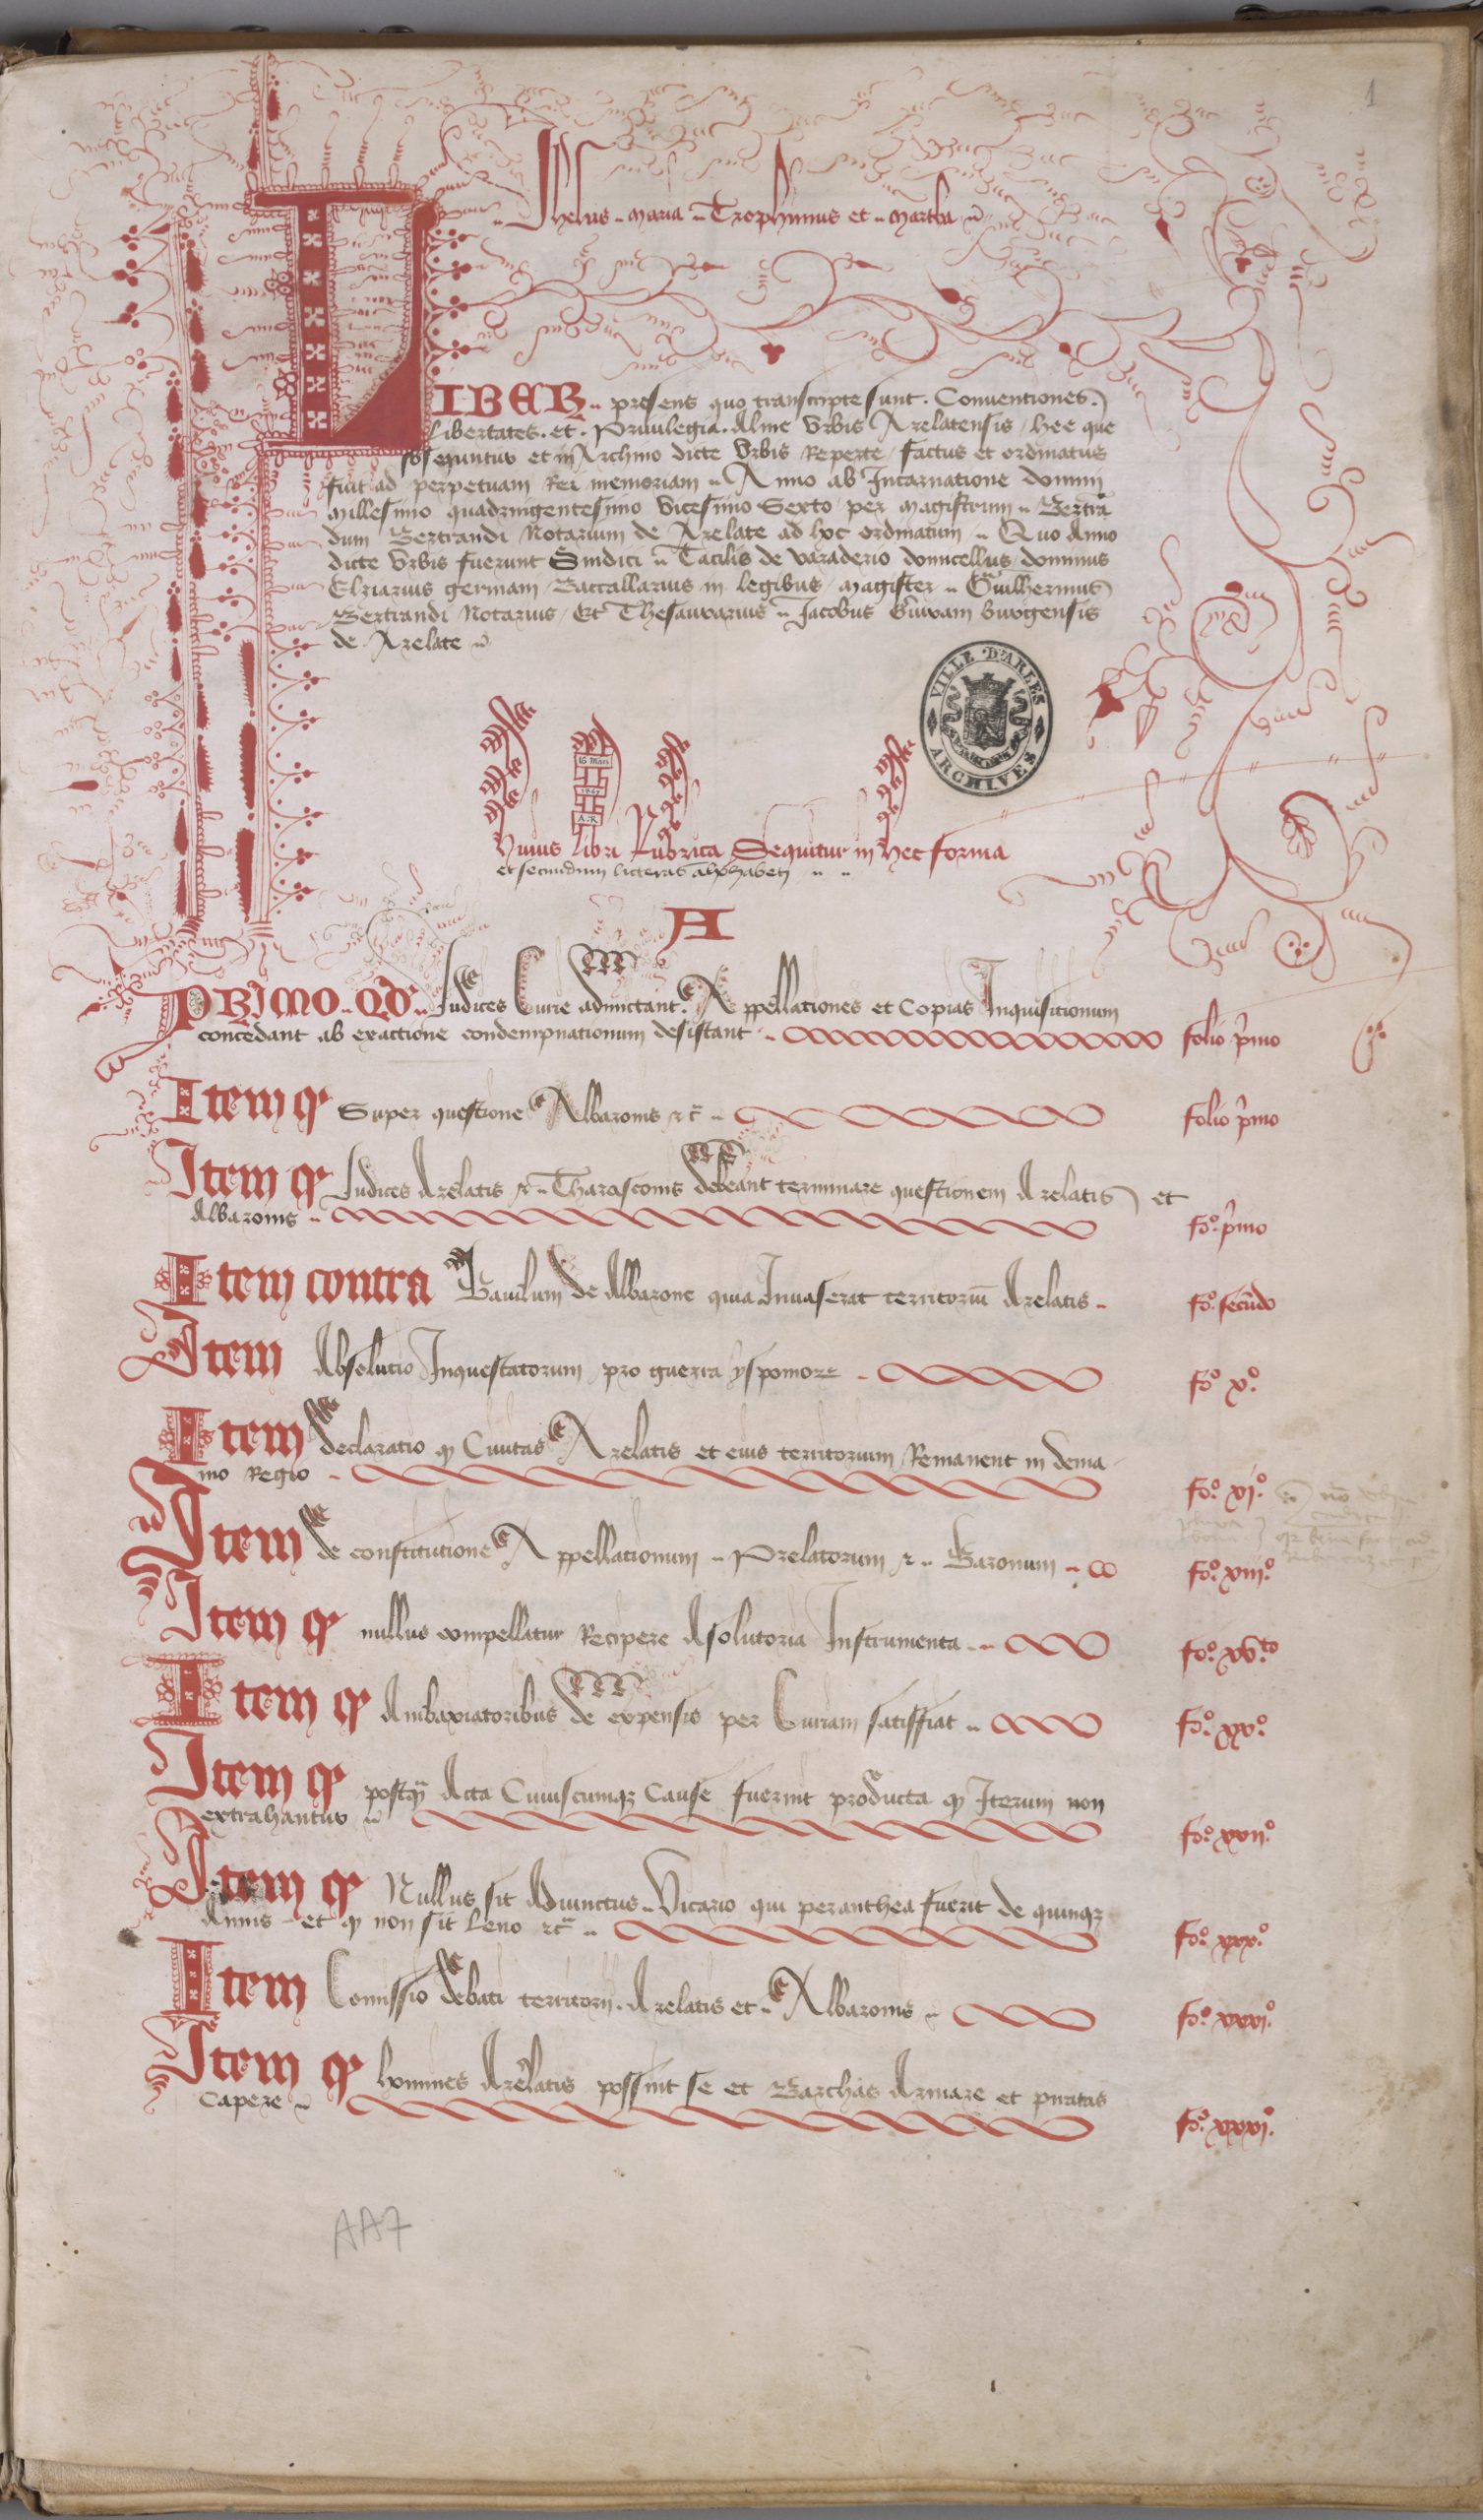 1
Jhesus .. maria .. Trophimus et .. martha ..
LIBER .. presens quo transcripte sunt . Conventiones .
Libertates . et . Privilegia . Alme Urbis Arelatensis / hee que
sosequntur et in Archivo dicte Urbis Reperte / factus et ordinatus
fuit ad perpetuam Rei memoriam .. Anno ab Incarnatione domini
millesimo quadringentesimo vicesimo Sexto / per magistrum .. Bertrā
dum / Bertrandi / Notarium de Arelate ad hoc ordinatum .. Quo Anno
dicte Urbis fuerunt Sindici .. Tacilis de varaderio domicellus / dominus
Elziarius germani / Baccallarius in legibus / magister .. Guilhermus
Bertrandi / Notarius / Et Thesaurarius .. Jacobus burgensis
de Arelate ..
VILLE D'ARLES
ARCHIVES
Huius Libri Rubrica Sequitur in hec forma
et secundum licteras alphabeti .. ..
A
PRIMO .. QD .. Judices Curie admictant Appellationes et Copias Inquisitionum
concedant ab exactione condempnationum desistant .. folio p̄mo
Item q Super questione Albaronis etc̄ .. folio p̄mo
Item q Judices Arelatis et .. Tharasconis debeant terminare questionem Arelatis et
Albaronis .. fo. p̄mo
Item contra Baiulum de Albarone quia Invaserat territoriū Arelatis .. fo. secūdo
Item Absolutio Inquestatorum pro guerra yspomore .. foº xº
Item declaratio q Civitas Arelatis et eius territorium Remanent in dema
nio Regio .. foº xjº
Item de constitutione Appellationum .. Prelatorum et .. Baronum .. foº xiiiº
Item q nullus compellatur Recipere Asolutoria Instrumenta .. foº xvto
Item q Ambaxiatoribus de expensis per Curiam satisffiat .. foº xxº
Item q postq̄ Acta Cuiuscumq; Cause fuerint producta q Iterum non
extrahantur .. foº xviiº
Item q Nullus sit Adiunctus .. Vicario qui peranthea fuerit de quinq;
Annis .. et q non sit Leno etc̄ .. foº xxxº
Item Comissio debati territorii . Arelatis et .. Albaronis .. foº xxxiº
Item q homines Arelatis possint se et Barchas Armare et piratas
Capere .. foº xxxiº
AA7